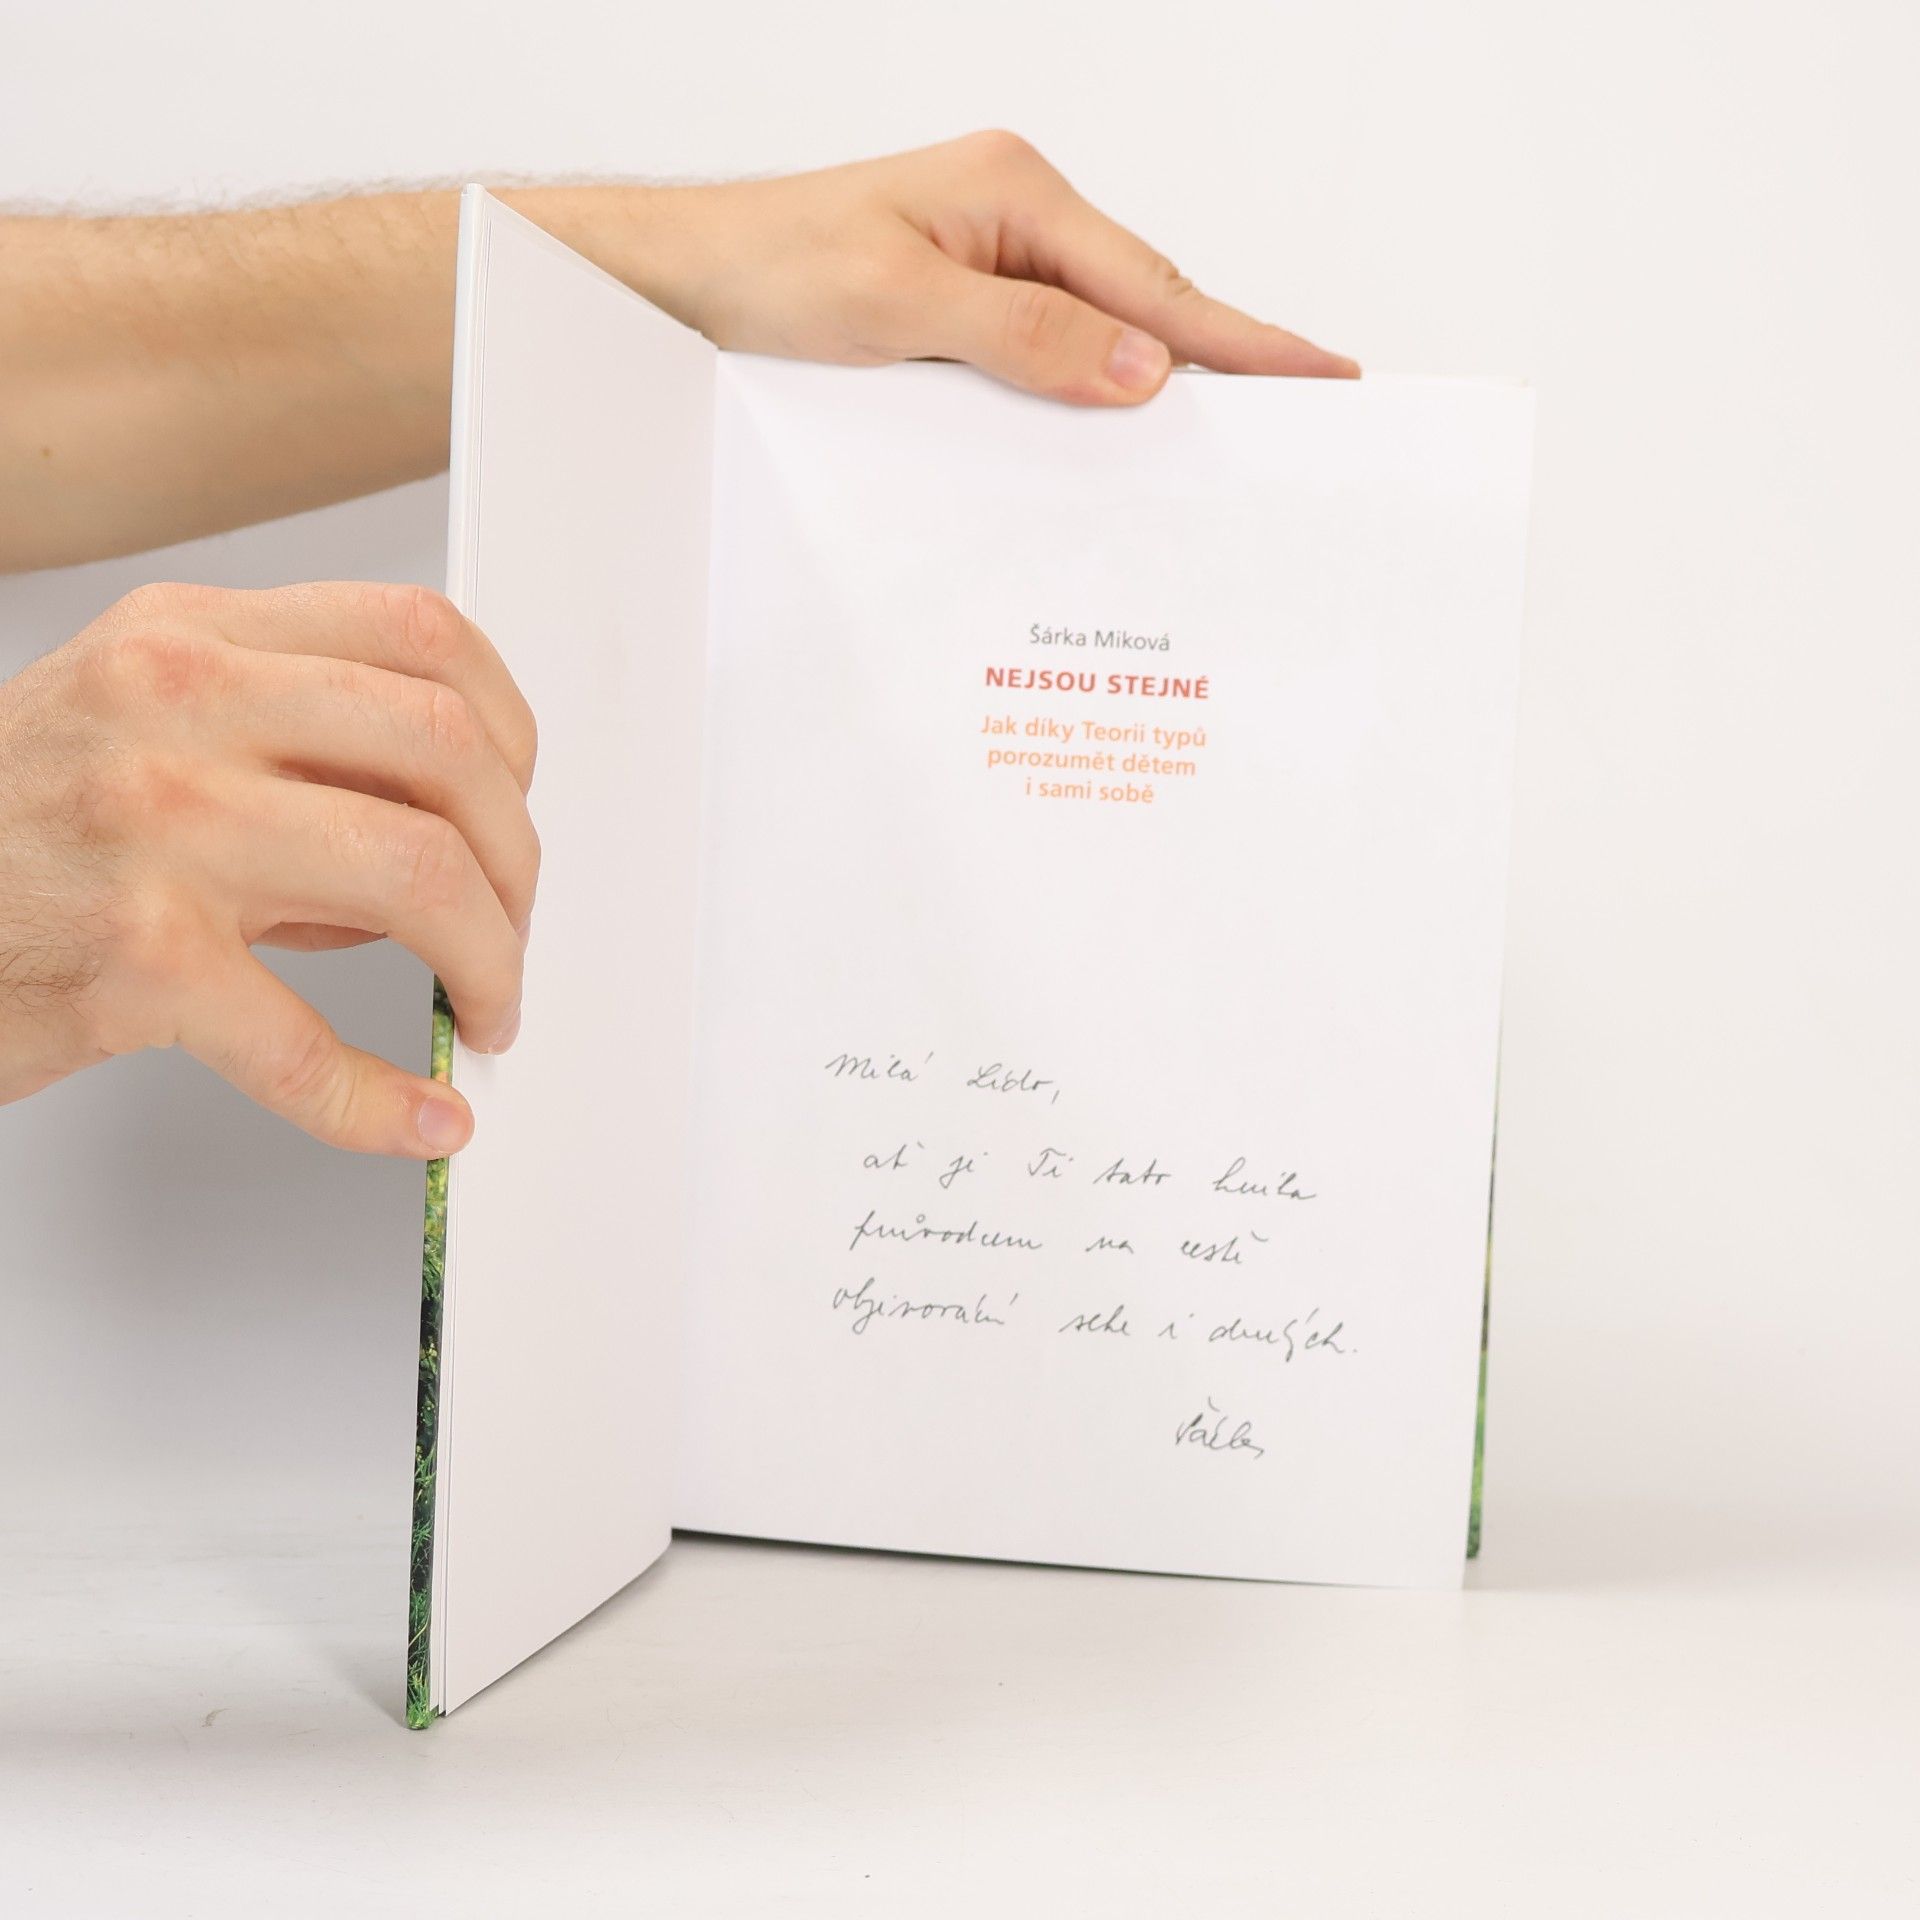 Šárka Miková
NEJSOU STEJNÉ
Jak díky Teorii typů
porozumět dětem
i sami sobě
Milá Lído,
ať je Ti tato kniha
průvodcem na cestě
objevování sebe i druhých.
Šárka